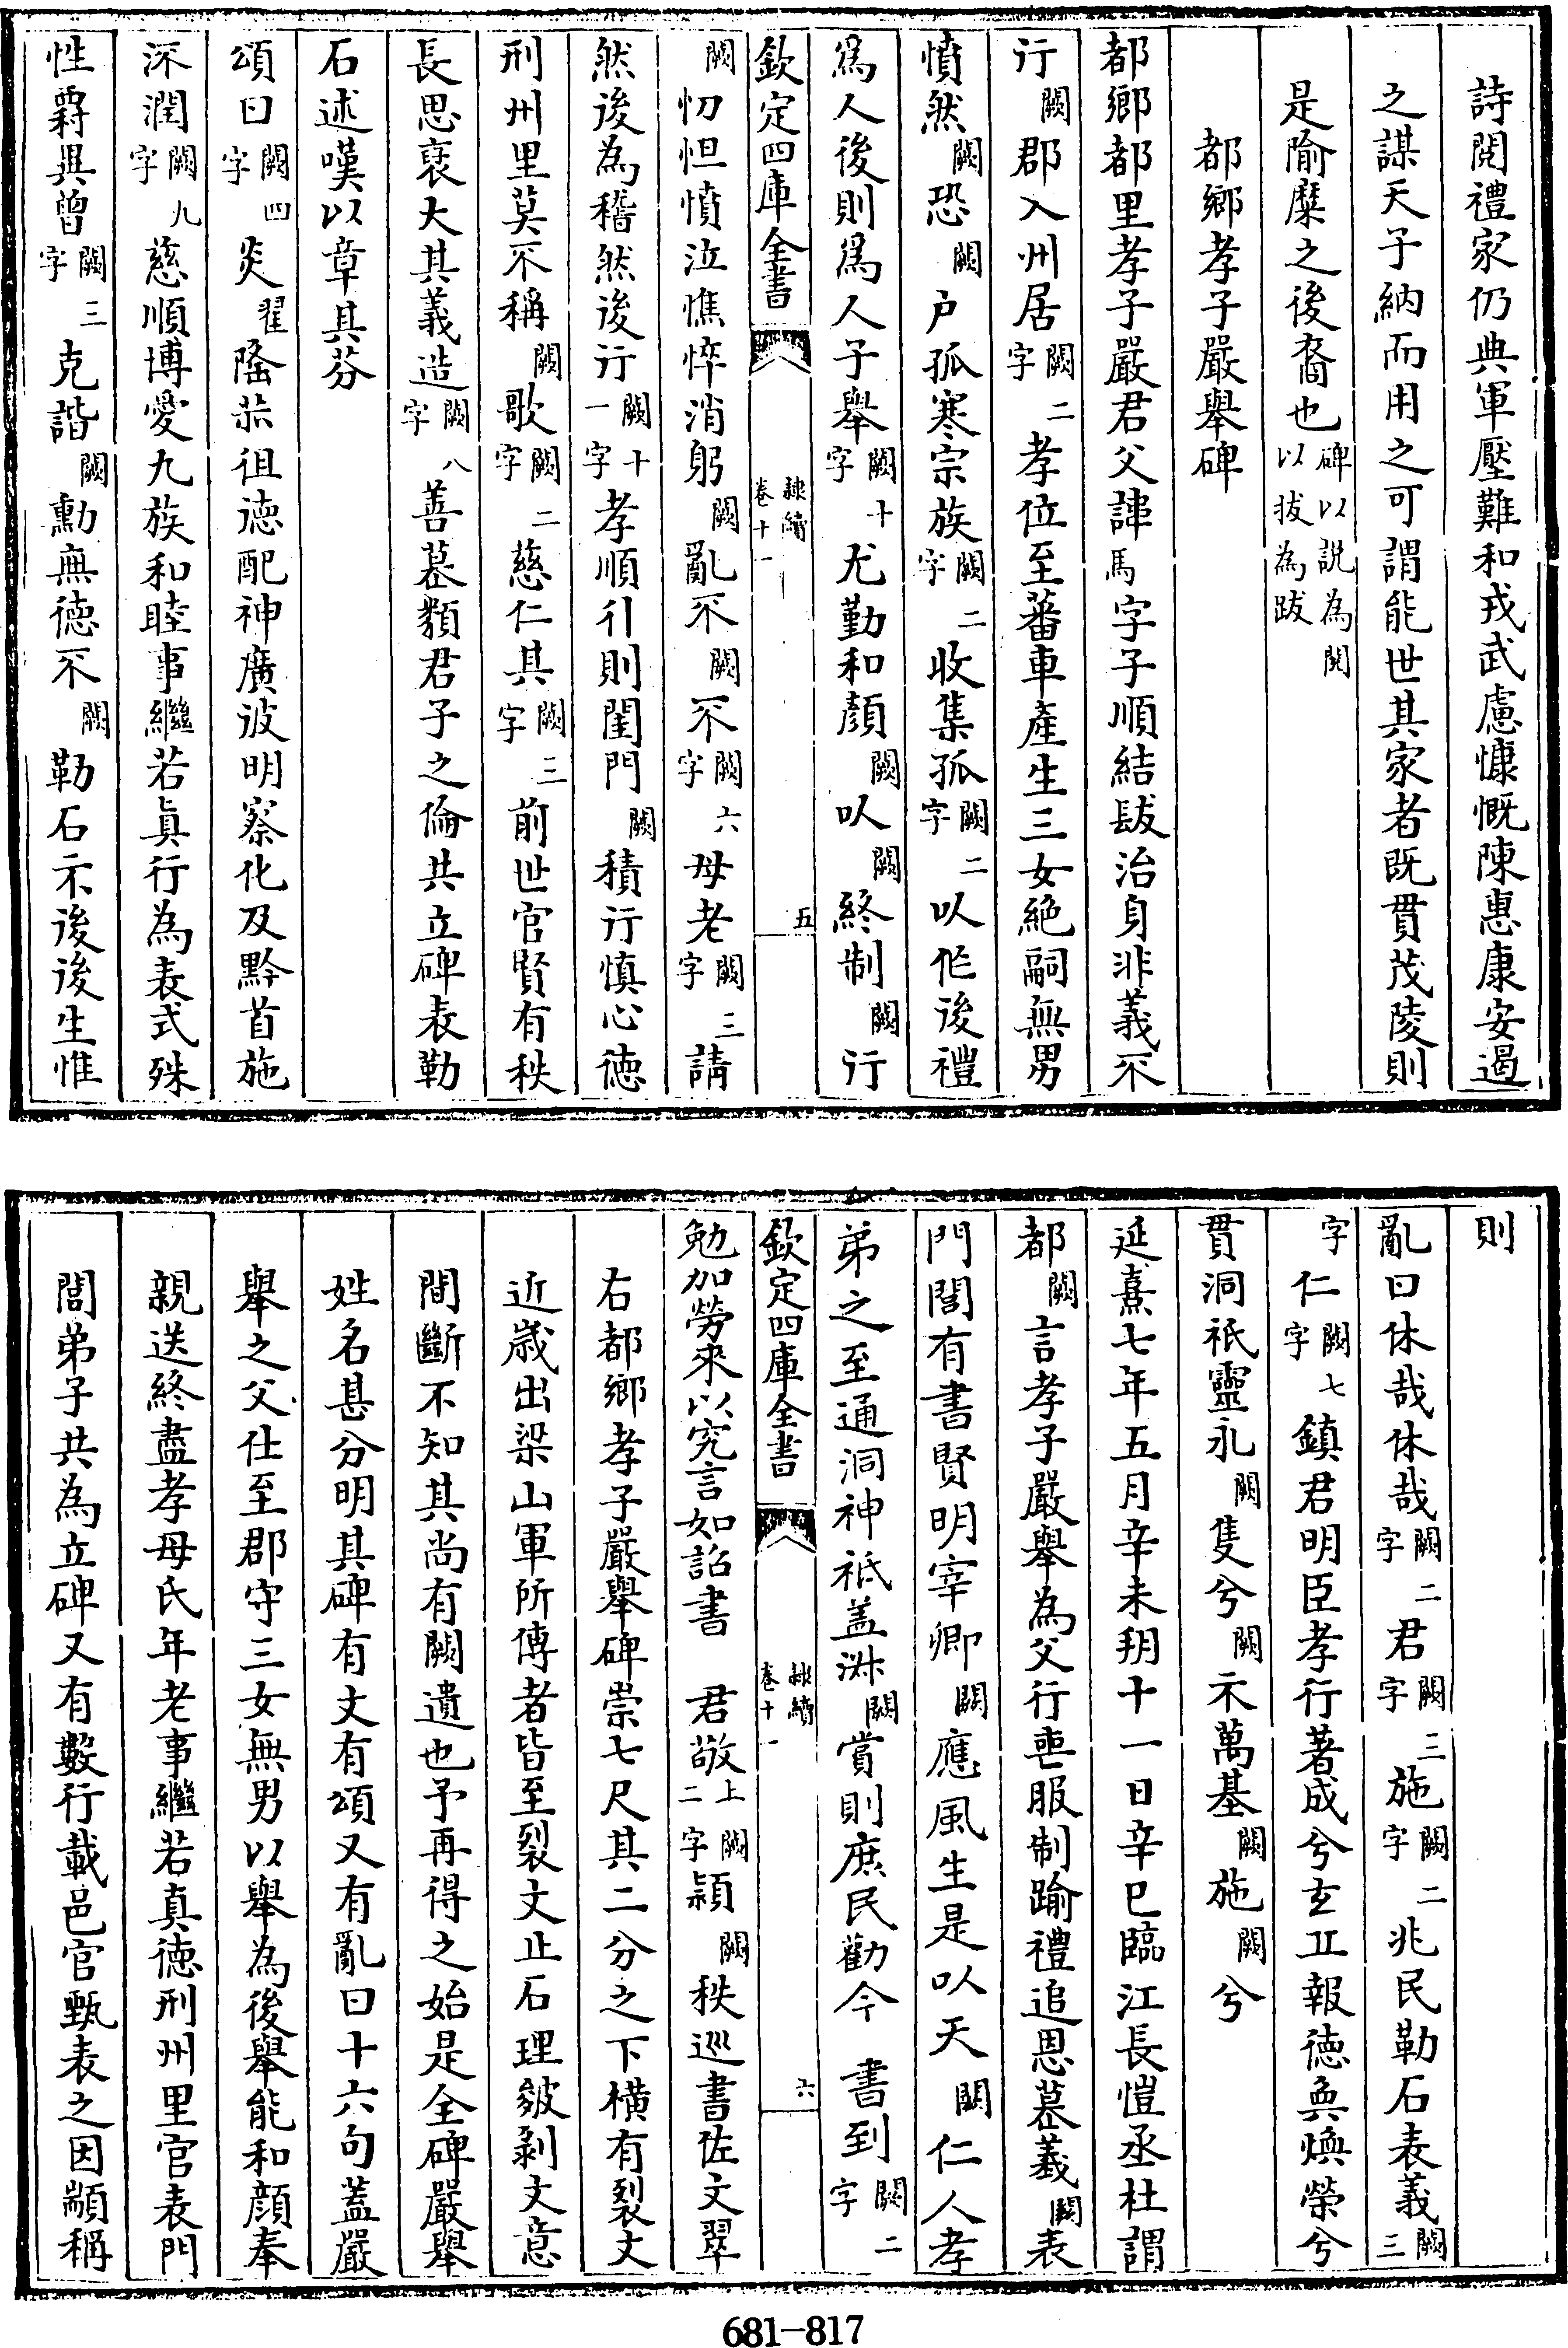 詩閱禮家仍典軍壓難和戎武慮慷慨陳惠康安遏
之謀天子納而用之可謂能世其家者既貫茂陵則
是隃麋之後裔也碑以説為閱以拔為跋
都鄉孝子嚴舉碑
都鄉都里孝子嚴君父諱馬字子順結髮治身非義不
行闕郡入州居闕二字孝位至蕃車產生三女絶嗣無男
憤然闕恐闕户孤寒宗族闕二字收集孤闕二字以作後禮
爲人後則爲人子舉闕十字尤勤和顏闕以闕終制闕行
欽定四庫全書
隸續
卷十一
五
闕忉怛憤泣憔悴消躬闕亂不闕不闕六字母老闕三字請
然後為稽然後行闕十一字孝順行則閨門闕積行慎心徳
刑州里莫不稱闕歌闕二字慈仁其闕三字前世官賢有秩
長思裦大其義造闕八字善慕類君子之倫共立碑表勒
石述嘆以章其芬
頌曰闕四字炎翟隆恭徂徳配神廣波明察化及黔首施
深潤闕九字慈順博愛九族和睦事繼若真行為表式殊
性㬱與曾闕三字克諧闕勳無徳不闕勒石示後後生惟
則
亂曰休哉休哉闕二字君闕三字施闕二字兆民勒石表義闕三
字仁闕七字鎮君明臣孝行著成兮玄丕報徳奐煥榮兮
貫洞祇靈永闕隻兮闕示萬基闕施闕兮
延熹七年五月辛未朔十一日辛巳臨江長愷丞杜謂
都闕言孝子嚴舉為父行喪服制踰禮追恩慕義闕表
門閭有書賢明宰卿闕應風生是以天闕仁人孝
弟之至通洞神祇盖淋闕賞則庶民勸今 書到闕二字
欽定四庫全書
隸續
卷十一
六
勉加勞來以究言如詔書 君敬上闕二字潁闕秩巡書佐文翠
右都鄉孝子嚴舉碑崇七尺其二分之下横有裂文
近歲出梁山軍所傳者皆至裂文止石理皴剥文意
間斷不知其尚有闕遺也予再得之始是全碑嚴舉
姓名甚分明其碑有文有頌又有亂曰十六句蓋嚴
舉之父仕至郡守三女無男以舉為後舉能和顔奉
親送終盡孝母氏年老事繼若真徳刑州里官表門
閭弟子共為立碑又有數行載邑官甄表之因顓稱
681-817